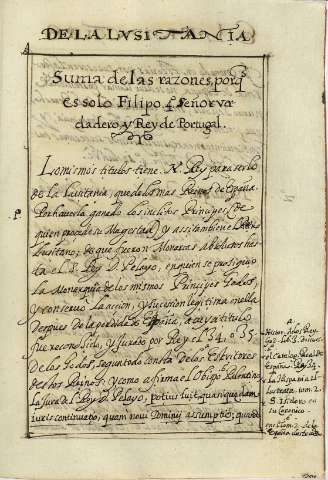 DE LA LVSITANIA
Suma de las razones, porq̃
es solo Filipo 4. señor ver
dadero, y Rey de Portugal.
Los mismos titulos tiene N. Rey para serlo
de la Lusitania, que de los mas Reynos de España.
Por haverla ganado los inclitos Principes (de
quien procede su Magestad) y assi tambien el
Lusitano; de que fueron Monarcas absolutos has
ta el S. Rey D. Pelayo, en quien se prosiguio
la Monarquia de los mismos Principes Godos,
y conservò la accion, y sucesion legitima en ella
despues de la perdida de España, a cuyo titulo
fue reconocido, y jurado por Rey el 34. o 35.
de los Godos, segun todo consta de los Escritores
destos Reynos: y como afirma el Obispo Palentino
la Jura del S. Rey D. Pelayo, potius fuit quasi quædam
iuris continuatio, quam novi Dominij assumptio; quando
a
España
la Hispania il
lustrata tom. 2.
S. Isidoro en
su Coronica
tom. 2. de la